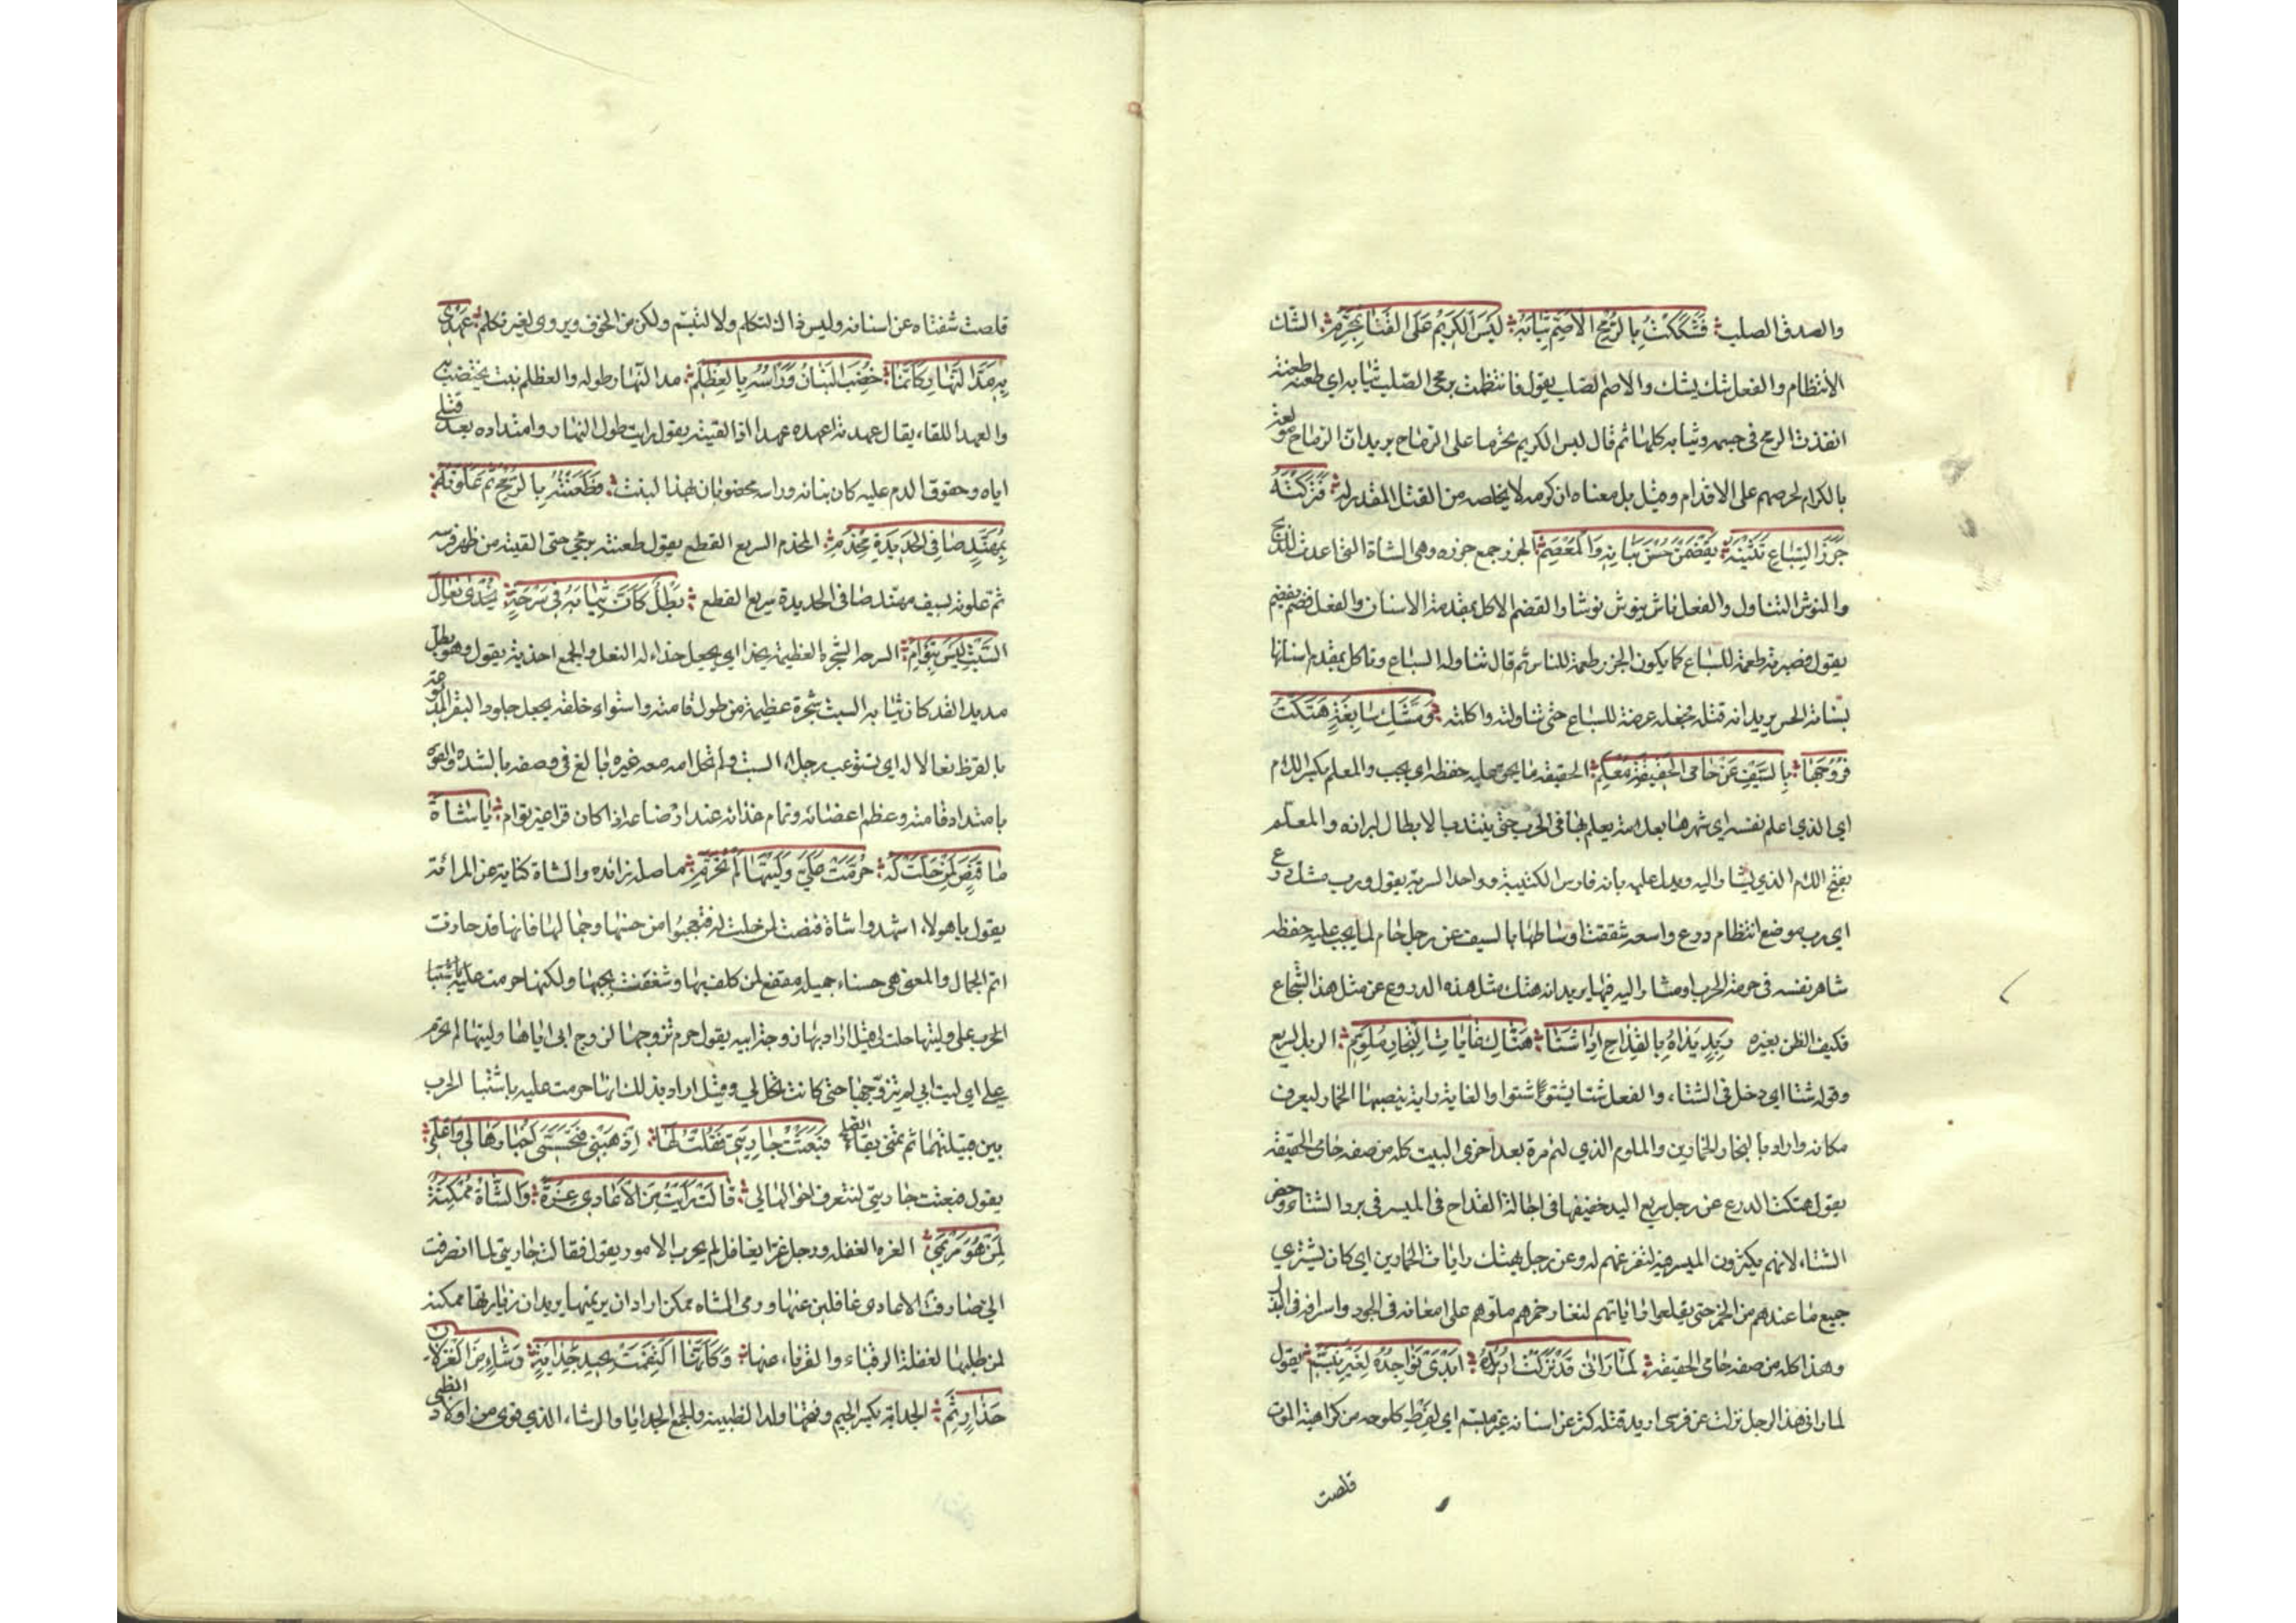 والصدق الصلب فَشَكَكْتُ بِالرُّمْحِ الأَصَمِّ ثِيَابَهُ لَيْسَ الكَرِيمُ عَلَى القَنَا بِمُحَرَّمِ الشك
الأنتظام والفعل شك يشك والاصم الصلب يقول فانتظمت برمحي الصلب ثيابه اي طعنته طعنة
انفذت الرمح في جسمه وثيابه كلها ثم قال ليس الكريم محرما على الرماح يريد ان الرماح مولعة
بالكرام لحرصهم على الاقدام وقيل بل معناه ان كرمه لا يخلصه من القتل المقدر له فَتَرَكْتُهُ
جَزَرَ السِّبَاعِ يَنُشْنَهُ يَقْضَمْنَ حُسْنَ بَنَانِهِ وَالمِعْصَمِ الجزر جمع جزره وهي الشاة التي اعدت للذبح
والنوش التناول والفعل ناش ينوش نوشا والقضم الاكل بمقدمة الاسنان والفعل قضم يقضم
يقول فصيرته طعمة للسباع كما يكون الجزر طعمة للناس ثم قال تناوله السباع وتاكل بمقدم اسنانها
بنانه الحسن يريد انه قتله فجعله عرضة للسباع حتى تناولته واكلته وَمِشَكِّ سَابِغَةٍ هَتَكْتُ
فُرُوجَهَا بِالسَّيْفِ عَنْ حَامِي الحَقِيقَةِ مُعْلَمِ الحقيقه ما يحق عليه حفظه اي يجب والمعلم بكسر اللام
اي الذي اعلم نفسه اي شهرها بعلامة يعلم بها في الحرب حتى ينتدب الابطال لبرازه والمعلم
بفتح اللام الذي يشار اليه ويدل عليه بانه فارس الكتيبة وواحد السرية يقول ورب مشك درع
اي رب موضع انتظام درع واسعه شققت اوساطها بالسيف عن رجل حام لما يجب عليه حفظه
شاهر نفسه في حومة الحرب او مشار اليه فيها يريد انه هتك مثل هذه الدروع عن مثل هذا الشجاع
فكيف الظن بغيره رَبِذٍ يَدَاهُ بِالقِدَاحِ اِذَا شَتَا هَتَّاكِ غَايَاتِ التِّجَارِ مُلَوَّمِ الربذ السريع
وقوله شتا اي دخل في الشتاء، والفعل شتا يشتو شتوا والغاية راية ينصبها الخمار ليعرف
مكانه واراد بالتجار الخمارين والملوم الذي ليم مرة بعد اخرى البيت كله من صفه حامي الحقيقه
يقول هتكت الدرع عن رجل سريع اليد خفيفها في اجالة القداح في الميسر في برد الشتاء وخص
الشتاء لانهم يكثرون الميسر فيه لتفرغهم له وعن رجل يهتك رايات الخمارين اي كان يشتري
جميع ما عندهم من الخمر حتى يقلعوا راياتهم لنفاد خمرهم ملوم على امعانه في الجود واسرافه في البذل
وهذا كله من صفه حامي الحقيقه لَمَّا رَآنِي قَدْ نَزَلْتُ اُرِيدُهُ اَبْدَى نَوَاجِذَهُ لِغَيْرِ تَبَسُّمِ يقول
لما راني هذا الرجل نزلت عن فرسي اريد قتله كشر عن اسنانه غير متبسم اي لفرط كلوحه من كراهية الموت
قلصت
قلصت شفتاه عن اسنانه وليس ذاك لتكلم ولا لتبسم ولكن من الخوف ويروى لغير تكلم عَهْدِي
بِهِ مَدَّ النَّهَارِ كَاَنَّمَا خُضِبَ البَنَانُ وَرَاسُهُ بِالعِظْلِمِ مد النهار طوله والعظلم نبت يختضب به
والعهد اللقاء، يقال عهدته اعهده عهدا اذا لقيته يقول رايت طول النهار وامتداده بعد قتلي
اياه وحقوق الدم عليه كان بنانه وراسه مخضوبان بهذا لنبت فَطَعَنْتُهُ بِالرُّمْحِ ثُمَّ عَلَوْتُهُ
بِمُهَنَّدٍ صَافِي الحَدِيدَةِ مِخْذَمِ المخذم السريع القطع يقول طعنته برمحي حتى القيته من ظهر فرسه
ثم علوته بسيف مهند صافي الحديدة سريع القطع بَطَلٍ كَاَنَّ ثِيَابَهُ فِي سَرْحَةٍ يُحْذَى نِعَالَ
السِّبْتِ لَيْسَ بِتَوْاَمِ السرحه الشجره العظيمة يحذا اي يجعل حذاء له النعل والجمع احذية يقول وهو بطل
مديد القد كان ثيابه البست شجرة عظيمة من طول قامته واستواء خلقه يجعل جلود البقر المدبوغة
بالقرظ نعالا له اي تستوعب رجلاه السبت ولم تحمل امه معه غيره بالغ في وصفه بالشده والقوه
بامتداد قامته وعظم اعضائه وتمام غذائه عند ارضاعه اذا كان فردا غير توام يَا شَاةَ
مَا قَنَصٍ لِمَنْ حَلَّتْ لَهُ حَرُمَتْ عَلَيَّ وَلَيْتَهَا لَمْ تَحْرُمِ ما صلة زائده والشاة كناية عن المرائة
يقول يا هولاء، اشهدوا شاة قنص لمن حلت له فتعجبوا من حسنها وجمالها فانها قد حازت
اتم الجمال والمعنى هي حسناء جميله مقنع لمن كلف بها وشغفت بحبها ولكنها حرمت عليه باشتبا
الحرب علي وليتها حلت لي قيل اراد بها زوجة ابيه يقول حرم تزوجها لزوج ابي اياها وليتها لم تحرم
علي اي ليت ابي لم يتزوجها حتى كانت تحل لي وقيل اراد بذلك انها حرمت عليه باشتبا الحرب
بين قبيلتيهما ثم تمنى بقاء الصلح فَبَعَثْتُ جَارِيَتِي فَقُلْتُ لَهَا اِذْهَبِي فَتَحَسَّسِي اَخْبَارَهَا لِي وَاعْلَمِي
يقول فبعثت جاريتي لتتعرف احوالها لي قَالَتْ رَاَيْتُ مِنَ الاَعَادِي غِرَّةً وَالشَّاةُ مُمْكِنَةٌ
لِمَنْ هُوَ مُرْتَمِي الغره الغفله ورجل غر اي غافل لم يجرب الامور يقول فقالت جاريتي لما انصرفت
الي صادفت الاعادي غافلين عنها ورمي الشاه ممكن اراد ان يرتميها يريد ان زيارتها ممكنة
لمن طلبها لغفلة الرقباء والقرناء، عنها وَكَاَنَّمَا الْتَفَتَتْ بِجِيدِ جَدَايَةٍ رَشَاءٍ مِنَ الغِزْلَانِ
حُرٍّ اَرْثَمِ الجداية بكسر الجيم وفتحها ولد الظبيية والجمع الجدايا والرشاء، الذي قوي من اولاد الظبي